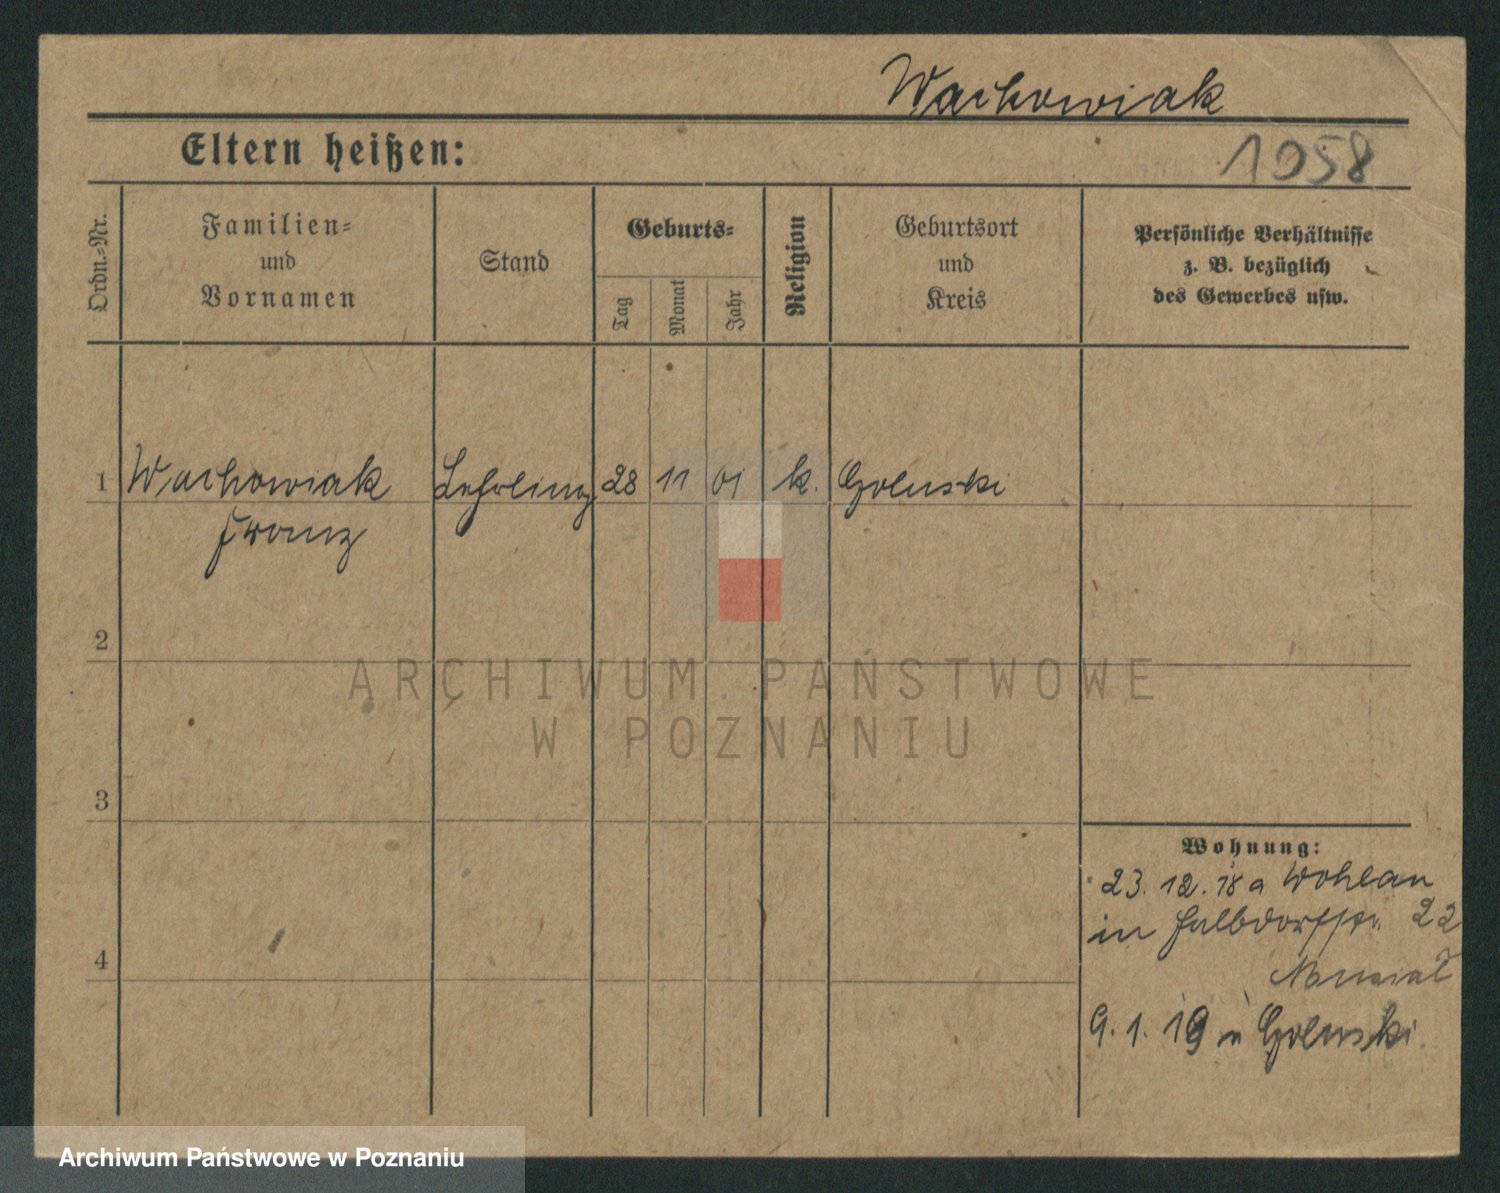 Wachowiak
Eltern heißen:
1058
Ordn.-Nr.
Familien-
und
Vornamen
Stand
Geburts-
Tag
Monat
Jahr
Religion
Geburtsort
und
Kreis
Persönliche Verhältnisse
z. B. bezüglich
des Gewerbes usw.
1 Wachowiak Lehrling 28 11 01 k. Golenski
Franz
2
ARCHIWUM PAŃSTWOWE
W POZNANIU
3
Wohnung:
23. 12. 18 a Wohlau
in Halbdorfstr. 22
4
9. 1. 19 n Golenski
Archiwum Państwowe w Poznaniu